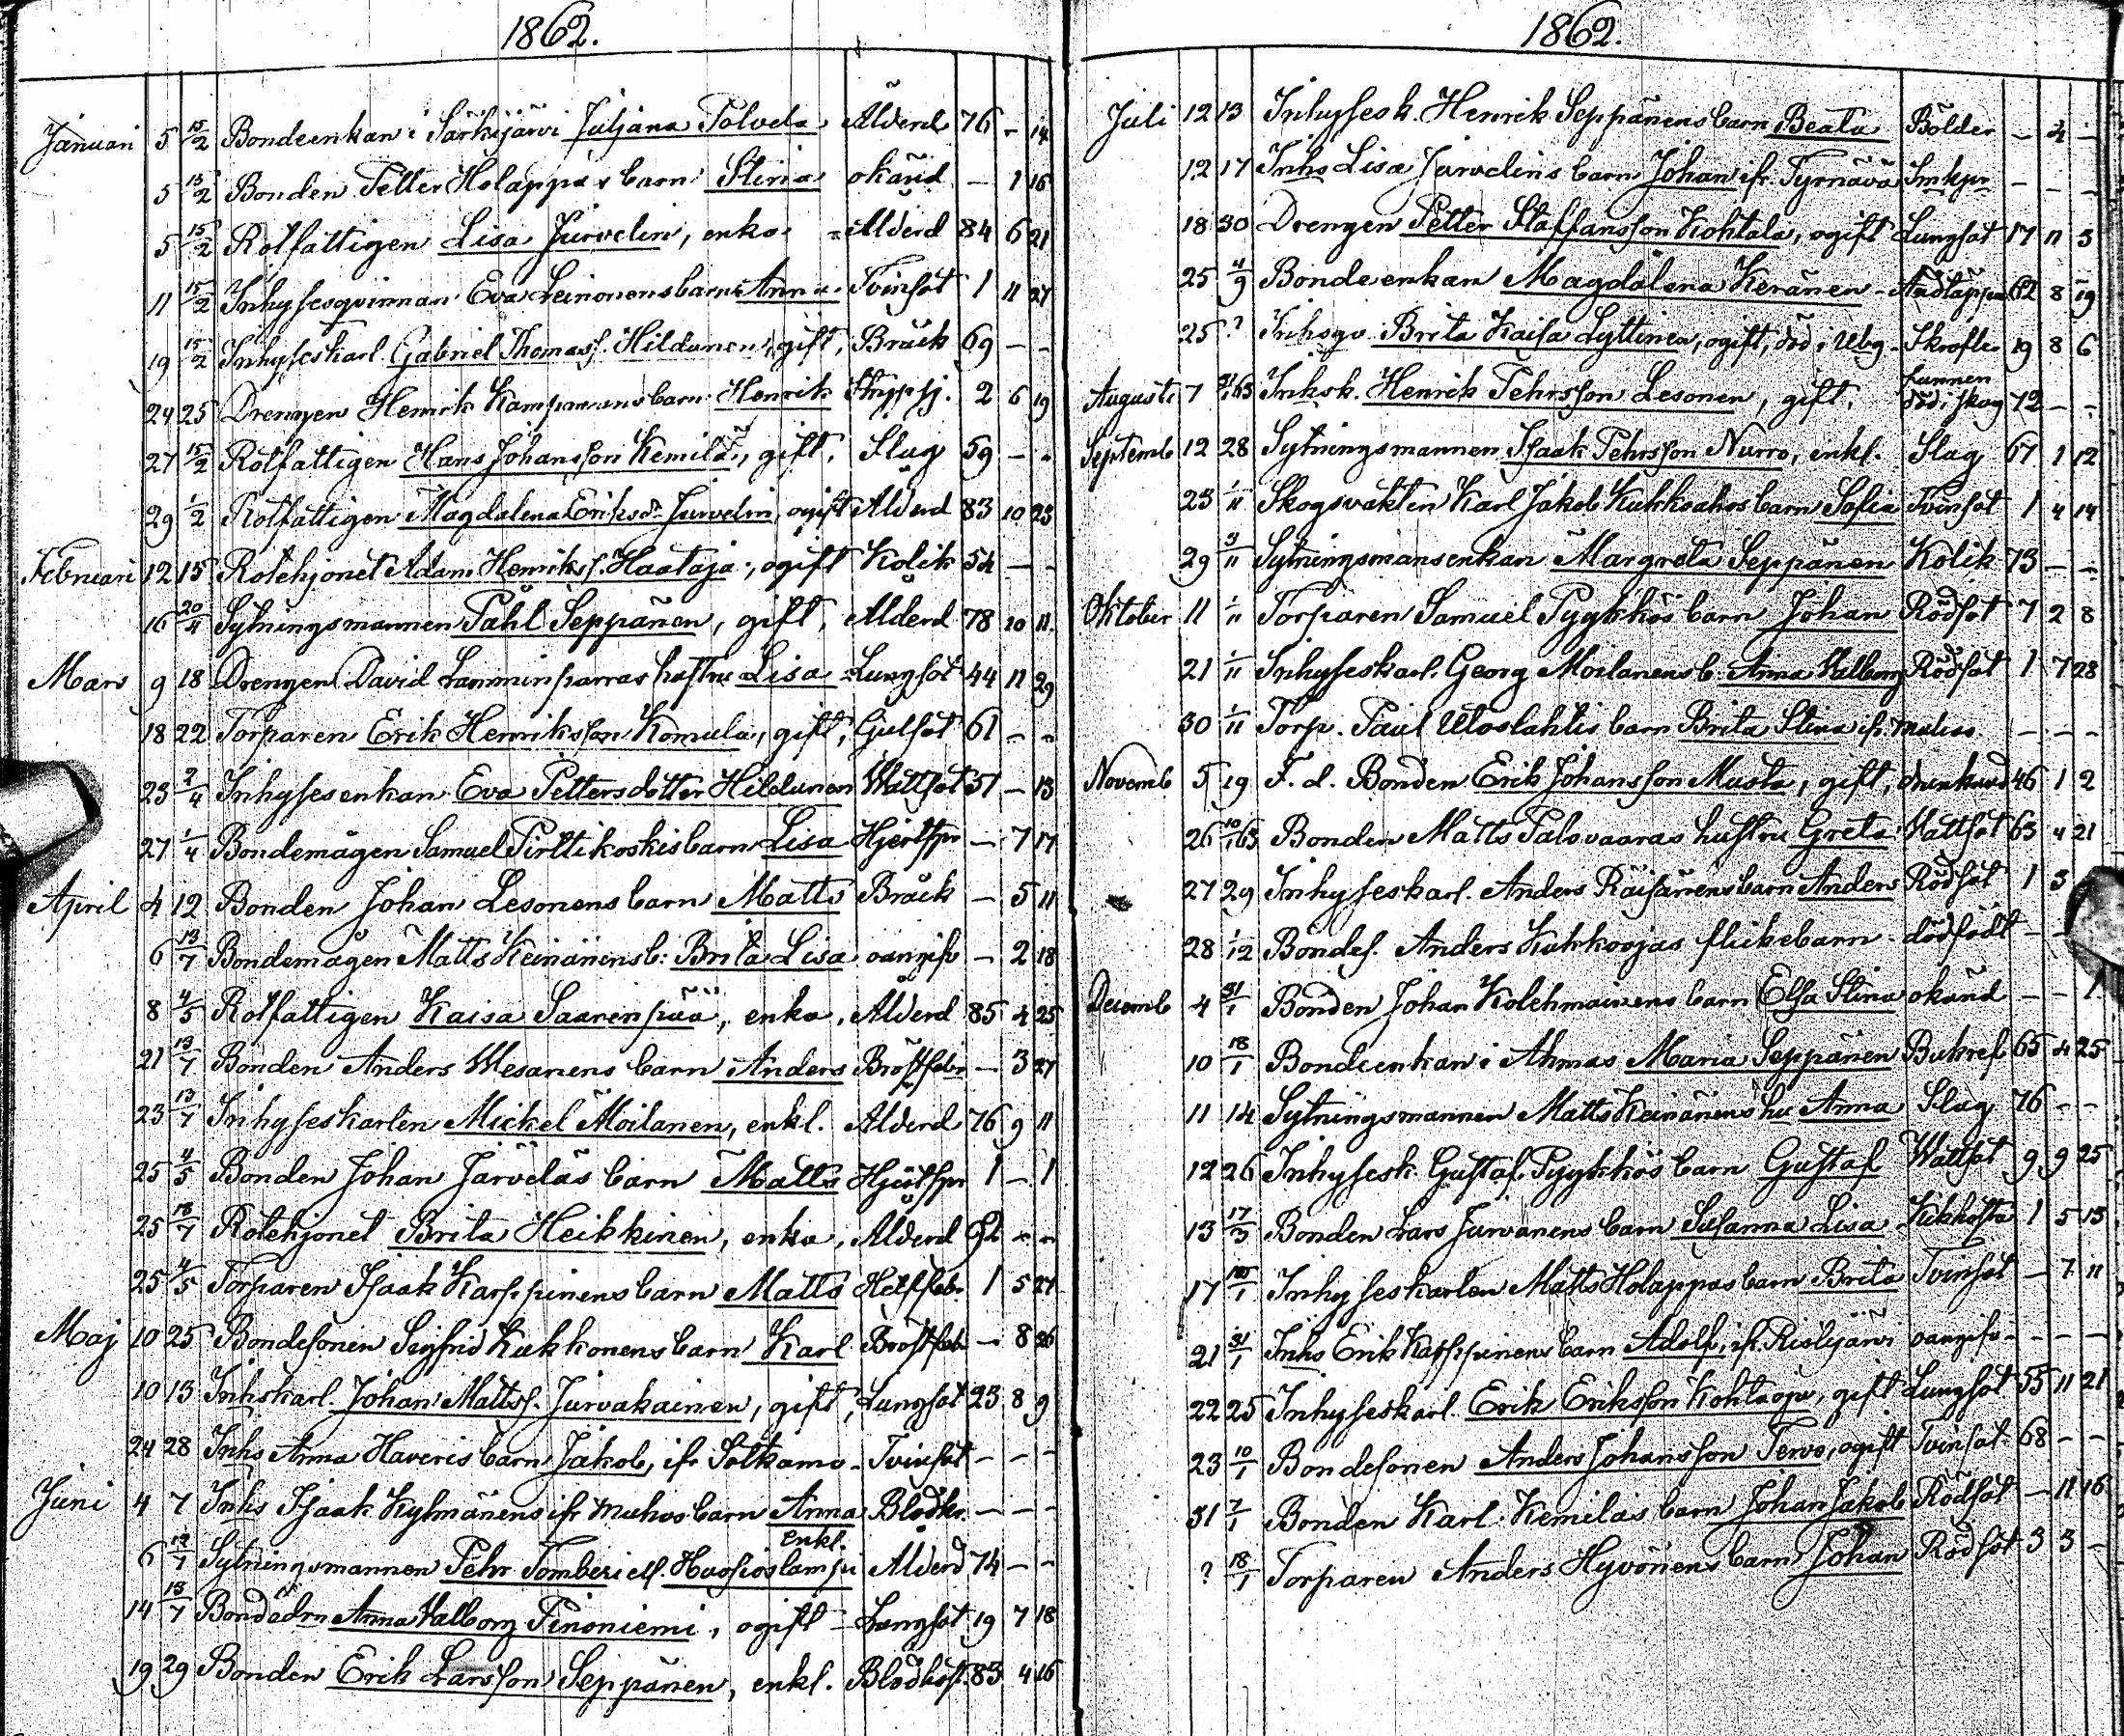 1862.
Januari 5 15/2 Bondeenkan i Särkijärvi Juljana Tolvela Ålderd 76 - 14
5 15/2 Bonden Petter Holappas barn Stina okänd - 1 16
5 15/2 Rotfattigen Lisa Jurvelin, enka Ålderd 84 6 21
11 15/2 Inhysesqvinnan Eva Leinonens barn Anna Tvinsot 1 11 27
19 15/2 Inhyseskarl. Gabriel Thomass. Hildunen, gift, Bråck 69 - -
24 25 Drengen Henrik Kampmans barn Henrik Strypsj. 2 6 19
27 15/2 Rotfattigen Hans Johansson Kemilä, gift, Slag 59 - -
29 1/2 Rotfattigen Magdalena Eriksdr Jurvelin, ogift Ålderd 83 10 23
Februari 12 15 Rotehjonet Adam Henrikss. Haataja, ogift Kolik 54 - -
16 20/4 Sytningsmannen Påhl Seppänen, gift, Ålderd 78 10 11
Mars 9 18 Drengen David Lamminparras hustru Lisa Lungsot 44 11 29
18 22 Torparen Erik Henriksson Komula, gift, Gulsot 61 - -
23 2/4 Inhysesenkan Eva Pettersdotter Hildunen Wattsot 51 - 13
27 1/4 Bondemågen Samuel Pirttikoskis barn Lisa Hjertspr - 7 17
April 4 12 Bonden Johan Lesonens barn Matts Bråck - 5 11
6 13/7 Bondemågen Matts Keinänens b: Brita Lisa oangifv - 2 18
8 4/5 Rotfattigen Kaisa Saarenpää, enka, Ålderd 85 4 25
21 13/7 Bonden Anders Wesanens barn Anders Bröstfebr - 3 27
23 13/7 Inhyseskarlen Mickel Moilanen, enkl. Ålderd 76 9 11
25 4/5 Bonden Johan Järveläs barn Matts Hjertspr 1 - 1
25 13/7 Rotehjonet Brita Heikkinen, enka, Ålderd 62 - -
25 4/5 Torparen Isaak Karppinens barn Matts Hetsfeb. 1 5 27
Maj 10 25 Bondesonen Sigfrid Kukkonens barn Karl Bröstfeb - 8 26
10 13 Inhskarl. Johan Mattss. Jurvakainen, gift, Lungsot 23 8 9
24 28 Inhs Anna Haveris barn Jakob, ifr Sotkamo Tvinsot - - -
Juni 4 7 Inhs Isaak Kylmänens ifr Muhos barn Anna Blodkr. - - -
enkl.
6 13/7 Sytningsmannen Pehr Tomberi ell. Huosioslampi Ålderd 74 - -
14 13/7 Bondedrn Anna Valborg Pinoniemi, ogift Lungsot 19 7 18
19 29 Bonden Erik Larsson Seppänen, enkl. Blodhost. 83 4 16
1862.
Juli 12 13 Inhysesk. Henrik Seppänens barn Beata Bölder - 4 -
12 17 Inhs Lisa Jurvelins barn Johan ifr. Tyrnävä - - -
18 30 Drengen Petter Staffansson Kohtala, ogift Lungsot 17 11 3
25 4/9 Bondeenkan Magdalena Keränen Andtäppa 62 8 19
25 ? Inhsqv. Brita Kaisa Lyttinen, ogift, död i Ubg Skrofler 19 8 6
Augusti 7 Inhsk. Henrik Pehrsson Lesonen, gift, funnen död i skog 72 - -
Septemb 12 28 Sytningsmannen Isaak Pehrsson Nurro, enkl. Slag 67 1 12
23 1/11 Skogsvakten Karl Jakob Kukkoahos barn Sofia Tvinsot 1 4 14
29 3/11 Sytningsmansenkan Margreta Seppänen Kolik 73 - -
Oktober 11 1/11 Torparen Samuel Pyykkös barn Johan Rödsot 7 2 8
21 1/11 Inhyseskarl. Georg Moilanens b. Anna Walborg Rödsot 1 7 28
30 1/11 Torp. Paul Utoslahtis barn Brita Stina ifr. - - -
Novemb 5 19 F. d. Bonden Erik Johansson Musta, gift, drunknad 46 1 2
26 10/1 63 Bonden Matts Palovaaras hustru Greta Wattsot 63 4 21
27 29 Inhyseskarl. Anders Räisänens barn Anders Rödsot 1 3
28 1/12 Bondes. Anders Kukkoojas flickebarn dödfödt - -
Decemb 4 31/1 Bonden Johan Kolehmainens barn Elsa Stina okänd - - 1
10 18/1 Bondeenkan i Ahmas Maria Seppänen Bukref 65 4 25
11 14 Sytningsmannen Matts Keinänens hu Anna Slag 76 - -
12 26 Inhysesk. Gustaf Pyykkös barn Gustaf Wattsot 9 9 25
13 17/3 Bonden Lars Jurvanens barn Susanna Lisa Kikhosta 1 5 13
17 Inhyseskarlen Matts Holappas barn Brita Tvinsot - 7 11
21 31/1 Inhs Erik Karppinens barn Adolf, ifr. Ristijärvi oangifv - - -
22 25 Inhyseskarl. Erik Eriksson Kohtaoja, gift Lungsot 55 11 21
23 10/1 Bondesonen Anders Johansson Tervo, ogift Tvinsot 68 - -
31 7/1 Bonden Karl Kemiläs barn Johan Jakob Rödsot - 11 16
? 18/1 Torparen Anders Hyvönens barn Johan Rödsot 3 3 -